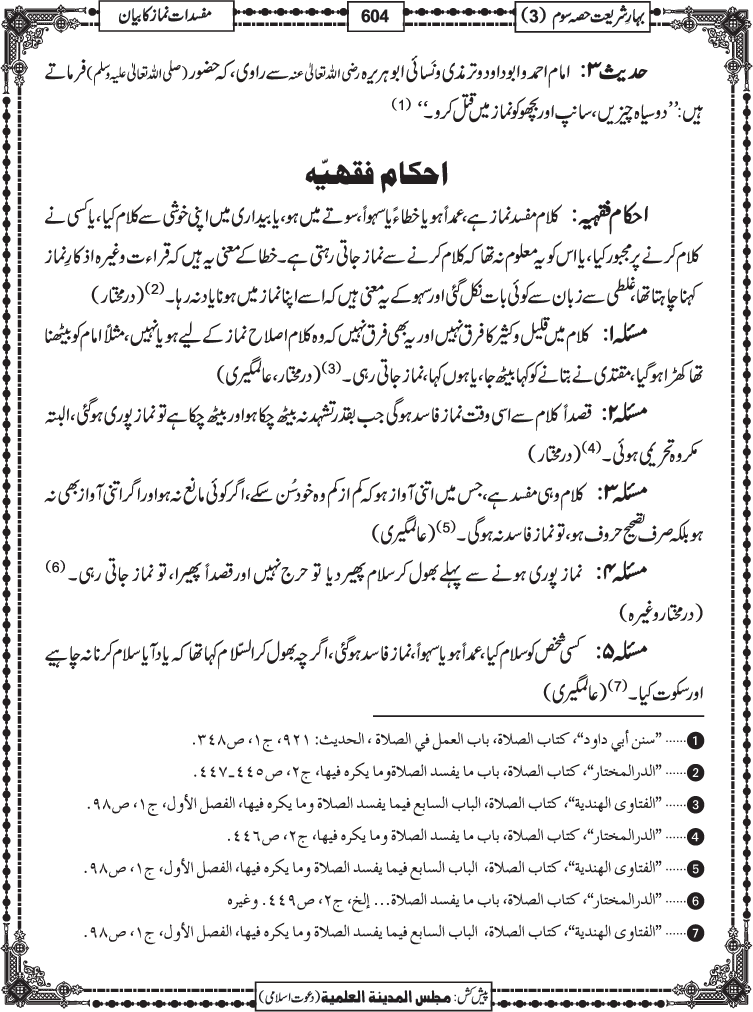 بہارِ شریعت حصہ سوم (3)
604
مفسدات نماز کا بیان
حدیث ۳: امام احمد و ابو داود و ترمذی و نَسائی ابوہریرہ رضی اللہ تعالیٰ عنہ سے راوی، کہ حضور (صلی اللہ تعالیٰ علیہ وسلم) فرماتے
ہیں: ’’دو سیاہ چیزیں، سانپ اور بچھو کو نماز میں قتل کرو۔‘‘ (1)
احکام فقہیّہ
احکام فقہیہ: کلام مفسد نماز ہے، عمداً ہو یا خطاءً یا سہواً، سوتے میں ہو، یا بیداری میں اپنی خوشی سے کلام کیا، یا کسی نے
کلام کرنے پر مجبور کیا، یا اس کو یہ معلوم نہ تھا کہ کلام کرنے سے نماز جاتی رہتی ہے۔ خطا کے معنی یہ ہیں کہ قراءت وغیرہ اذکارِ نماز
کہنا چاہتا تھا، غلطی سے زبان سے کوئی بات نکل گئی اور سہو کے یہ معنی ہیں کہ اسے اپنا نماز میں ہونا یاد نہ رہا۔(2) (درمختار)
مسئلہ ۱: کلام میں قلیل و کثیر کا فرق نہیں اور یہ بھی فرق نہیں کہ وہ کلام اصلاح نماز کے لیے ہو یا نہیں، مثلاً امام کو بیٹھنا
تھا کھڑا ہو گیا، مقتدی نے بتانے کو کہا بیٹھ جا، یا ہوں کہا، نماز جاتی رہی۔(3) (درمختار، عالمگیری)
مسئلہ ۲: قصداً کلام سے اسی وقت نماز فاسد ہوگی جب بقدر تشہد نہ بیٹھ چکا ہو اور بیٹھ چکا ہے تو نماز پوری ہوگئی، البتہ
مکروہ تحریمی ہوئی۔(4) (درمختار)
مسئلہ ۳: کلام وہی مفسد ہے، جس میں اتنی آواز ہو کہ کم از کم وہ خود سُن سکے، اگر کوئی مانع نہ ہو اور اگر اتنی آواز بھی نہ
ہو بلکہ صرف تصحیح حروف ہو، تو نماز فاسد نہ ہوگی۔(5) (عالمگیری)
مسئلہ ۴: نماز پوری ہونے سے پہلے بھول کر سلام پھیر دیا تو حرج نہیں اور قصداً پھیرا، تو نماز جاتی رہی۔(6)
(درمختار وغیرہ)
مسئلہ ۵: کسی شخص کو سلام کیا، عمداً ہو یا سہواً، نماز فاسد ہوگئی، اگرچہ بھول کر السّلام کہا تھا کہ یاد آیا سلام کرنا نہ چاہیے
اور سکوت کیا۔(7) (عالمگیری)
1 ...... ’’سنن أبي داود‘‘، كتاب الصلاة، باب العمل في الصلاة ، الحديث: ٩٢١، ج١، ص٣٤٨.
2 ...... ’’الدرالمختار‘‘، كتاب الصلاة، باب ما يفسد الصلاةوما يكره فيها، ج٢، ص٤٤٥-٤٤٧.
3 ...... ’’الفتاوى الهندية‘‘، كتاب الصلاة، الباب السابع فيما يفسد الصلاة وما يكره فيها، الفصل الأول، ج١، ص٩٨.
4 ...... ’’الدرالمختار‘‘، كتاب الصلاة، باب ما يفسد الصلاة وما يكره فيها، ج٢، ص٤٤٦.
5 ...... ’’الفتاوى الهندية‘‘، كتاب الصلاة، الباب السابع فيما يفسد الصلاة وما يكره فيها، الفصل الأول، ج١، ص٩٨.
6 ...... ’’الدرالمختار‘‘، كتاب الصلاة، باب ما يفسد الصلاة... إلخ، ج٢، ص٤٤٩. وغيره
7 ...... ’’الفتاوى الهندية‘‘، كتاب الصلاة، الباب السابع فيما يفسد الصلاة وما يكره فيها، الفصل الأول، ج١، ص٩٨.
پیش کش: مجلس المدینة العلمیة (دعوت اسلامی)